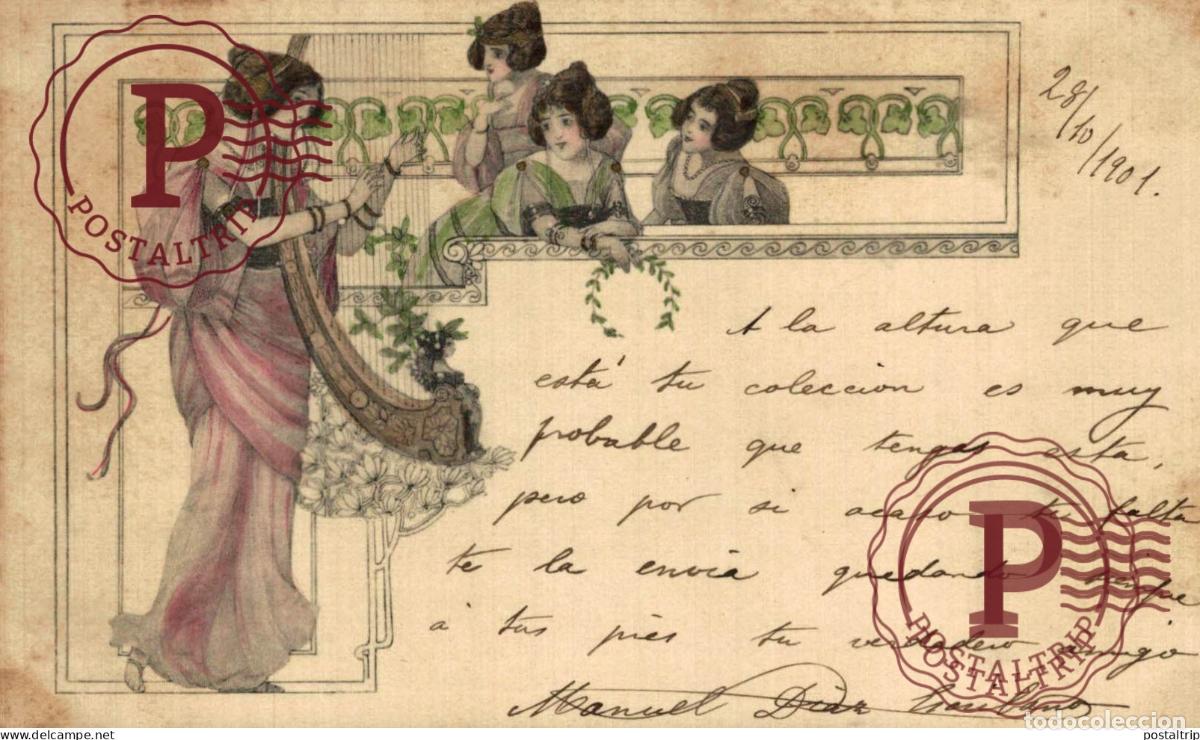 28/10/1901.
A la altura que
está tu coleccion es muy
probable que tengas esta,
pero por si acaso tu falta
te la envia quedando siempre
á tus pies tu verdadero amigo
Manuel Diaz
P
POSTALTRIP
P
POSTALTRIP
POSTALTRIP
todocoleccion
www.delcampe.net
postaltrip